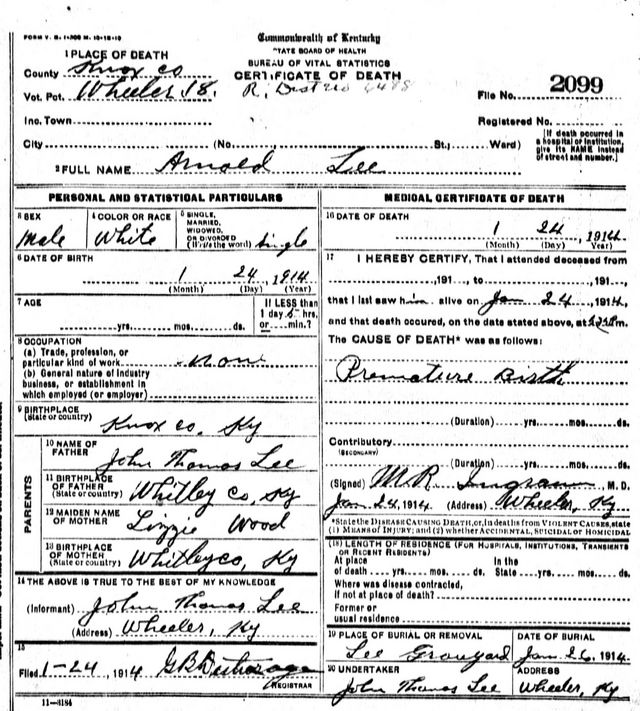 FORM V. S. 1-300 M. 10-18-10
Commonwealth of Kentucky
STATE BOARD OF HEALTH
BUREAU OF VITAL STATISTICS
CERTIFICATE OF DEATH
1 PLACE OF DEATH
County Knox co
Vot. Pct. Wheeler 18.
R. Dist no
File No. 2099
Inc. Town
Registered No.
City (No. St.; Ward)
[If death occurred in a hospital or institution, give its NAME instead of street and number.]
2 FULL NAME Arnold Lee
PERSONAL AND STATISTICAL PARTICULARS
3 SEX
male
4 COLOR OR RACE
White
5 SINGLE, MARRIED, WIDOWED, OR DIVORCED (Write the word) Single
6 DATE OF BIRTH
1 24, 1914
(Month) (Day) (Year)
7 AGE
yrs. mos. ds.
If LESS than 1 day 5 hrs. or min.?
8 OCCUPATION
(a) Trade, profession, or particular kind of work none
(b) General nature of industry business, or establishment in which employed (or employer)
9 BIRTHPLACE
(State or country) Knox co, Ky
PARENTS
10 NAME OF FATHER John Thomas Lee
11 BIRTHPLACE OF FATHER (State or country) Whitley Co, Ky
12 MAIDEN NAME OF MOTHER Lizzie Wood
13 BIRTHPLACE OF MOTHER (State or country) Whitley co, Ky
14 THE ABOVE IS TRUE TO THE BEST OF MY KNOWLEDGE
(Informant) John Thomas Lee
(Address) Wheeler, Ky
15
Filed 1-24, 1914 G B
REGISTRAR
11-3184
MEDICAL CERTIFICATE OF DEATH
16 DATE OF DEATH
1 24, 1914
(Month) (Day) (Year)
17 I HEREBY CERTIFY, That I attended deceased from
, 191 , to , 191 ,
that I last saw him alive on Jan 24, 1914,
and that death occured, on the date stated above, at m.
The CAUSE OF DEATH* was as follows:
Premature Birth
(Duration) yrs. mos. ds.
Contributory
(SECONDARY)
(Duration) yrs. mos. ds.
(Signed) M R Ingram M. D.
Jan 24, 1914 (Address) Wheeler, Ky
*State the DISEASE CAUSING DEATH, or, in deaths from VIOLENT CAUSES, state
(1) MEANS OF INJURY; and (2) whether ACCIDENTAL, SUICIDAL OR HOMICIDAL
(18) LENGTH OF RESIDENCE (FOR HOSPITALS, INSTITUTIONS, TRANSIENTS OR RECENT RESIDENTS)
At place of death yrs. mos. ds. In the State yrs. mos. ds.
Where was disease contracted, if not at place of death?
Former or usual residence
19 PLACE OF BURIAL OR REMOVAL
Lee Graveyard
DATE OF BURIAL
Jan 26, 1914
20 UNDERTAKER
John Thomas Lee
ADDRESS
Wheeler, Ky